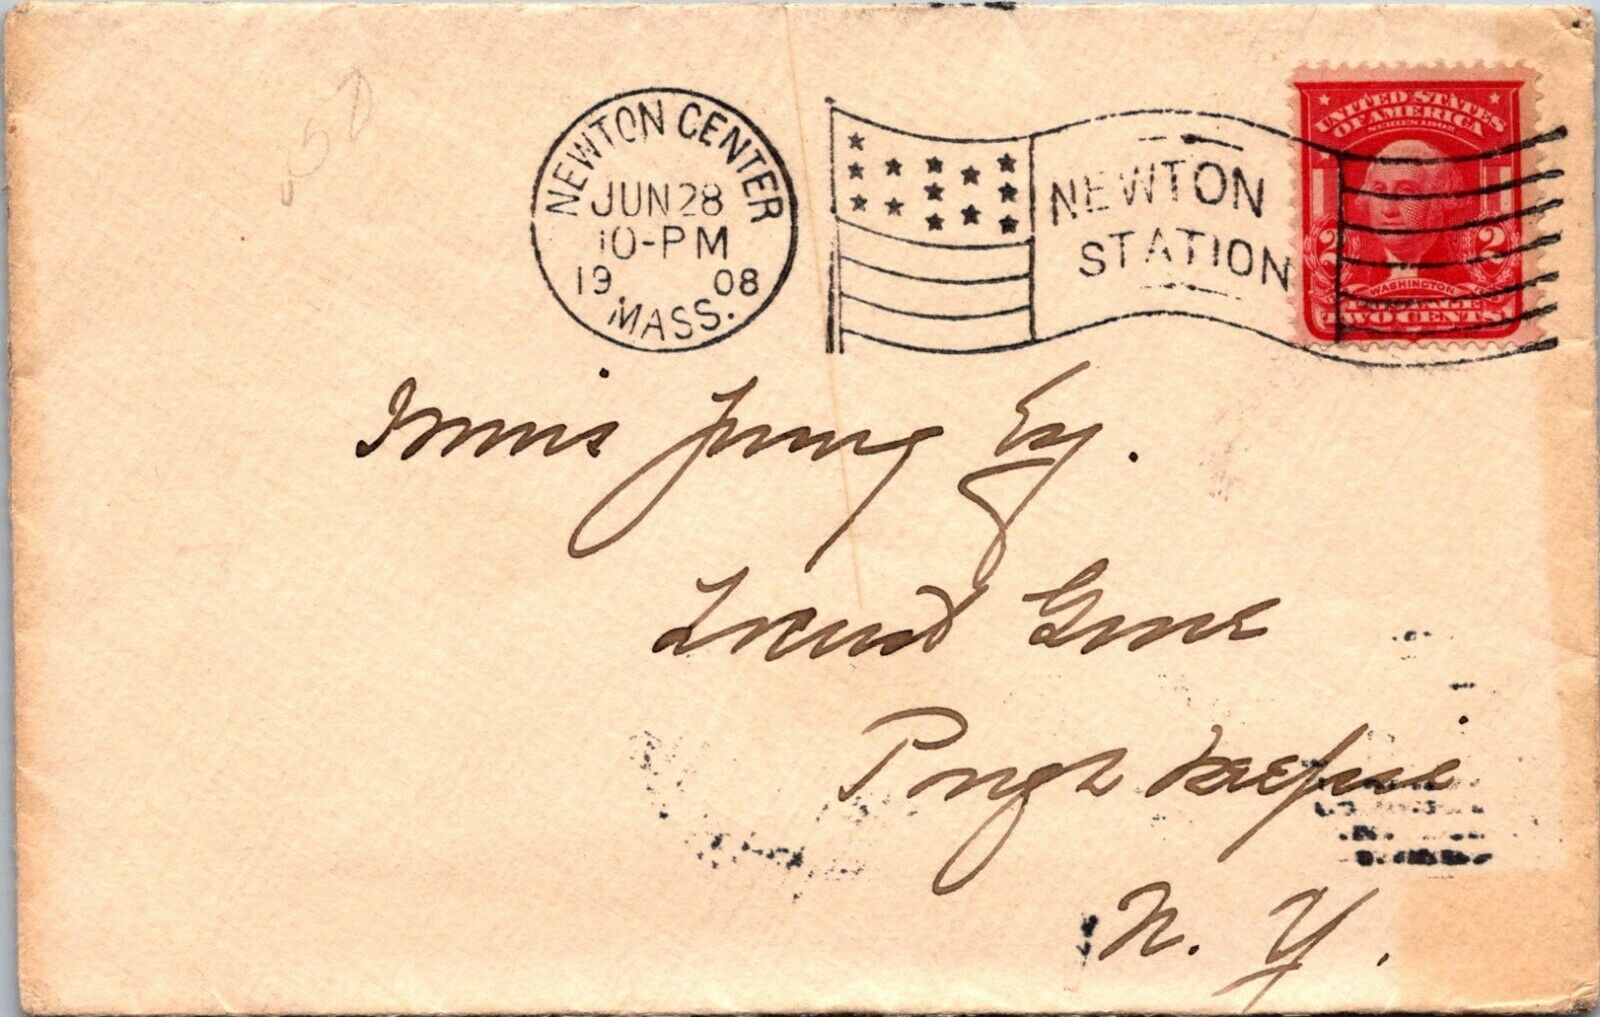 NEWTON CENTER
JUN 28
10-PM
19 08
MASS.
NEWTON
STATION
UNITED STATES
OF AMERICA
SERIES 1902
2 2
WASHINGTON
TWO CENTS
Innis Young Esq.
Locust Grove
Poughkeepsie
N. Y.